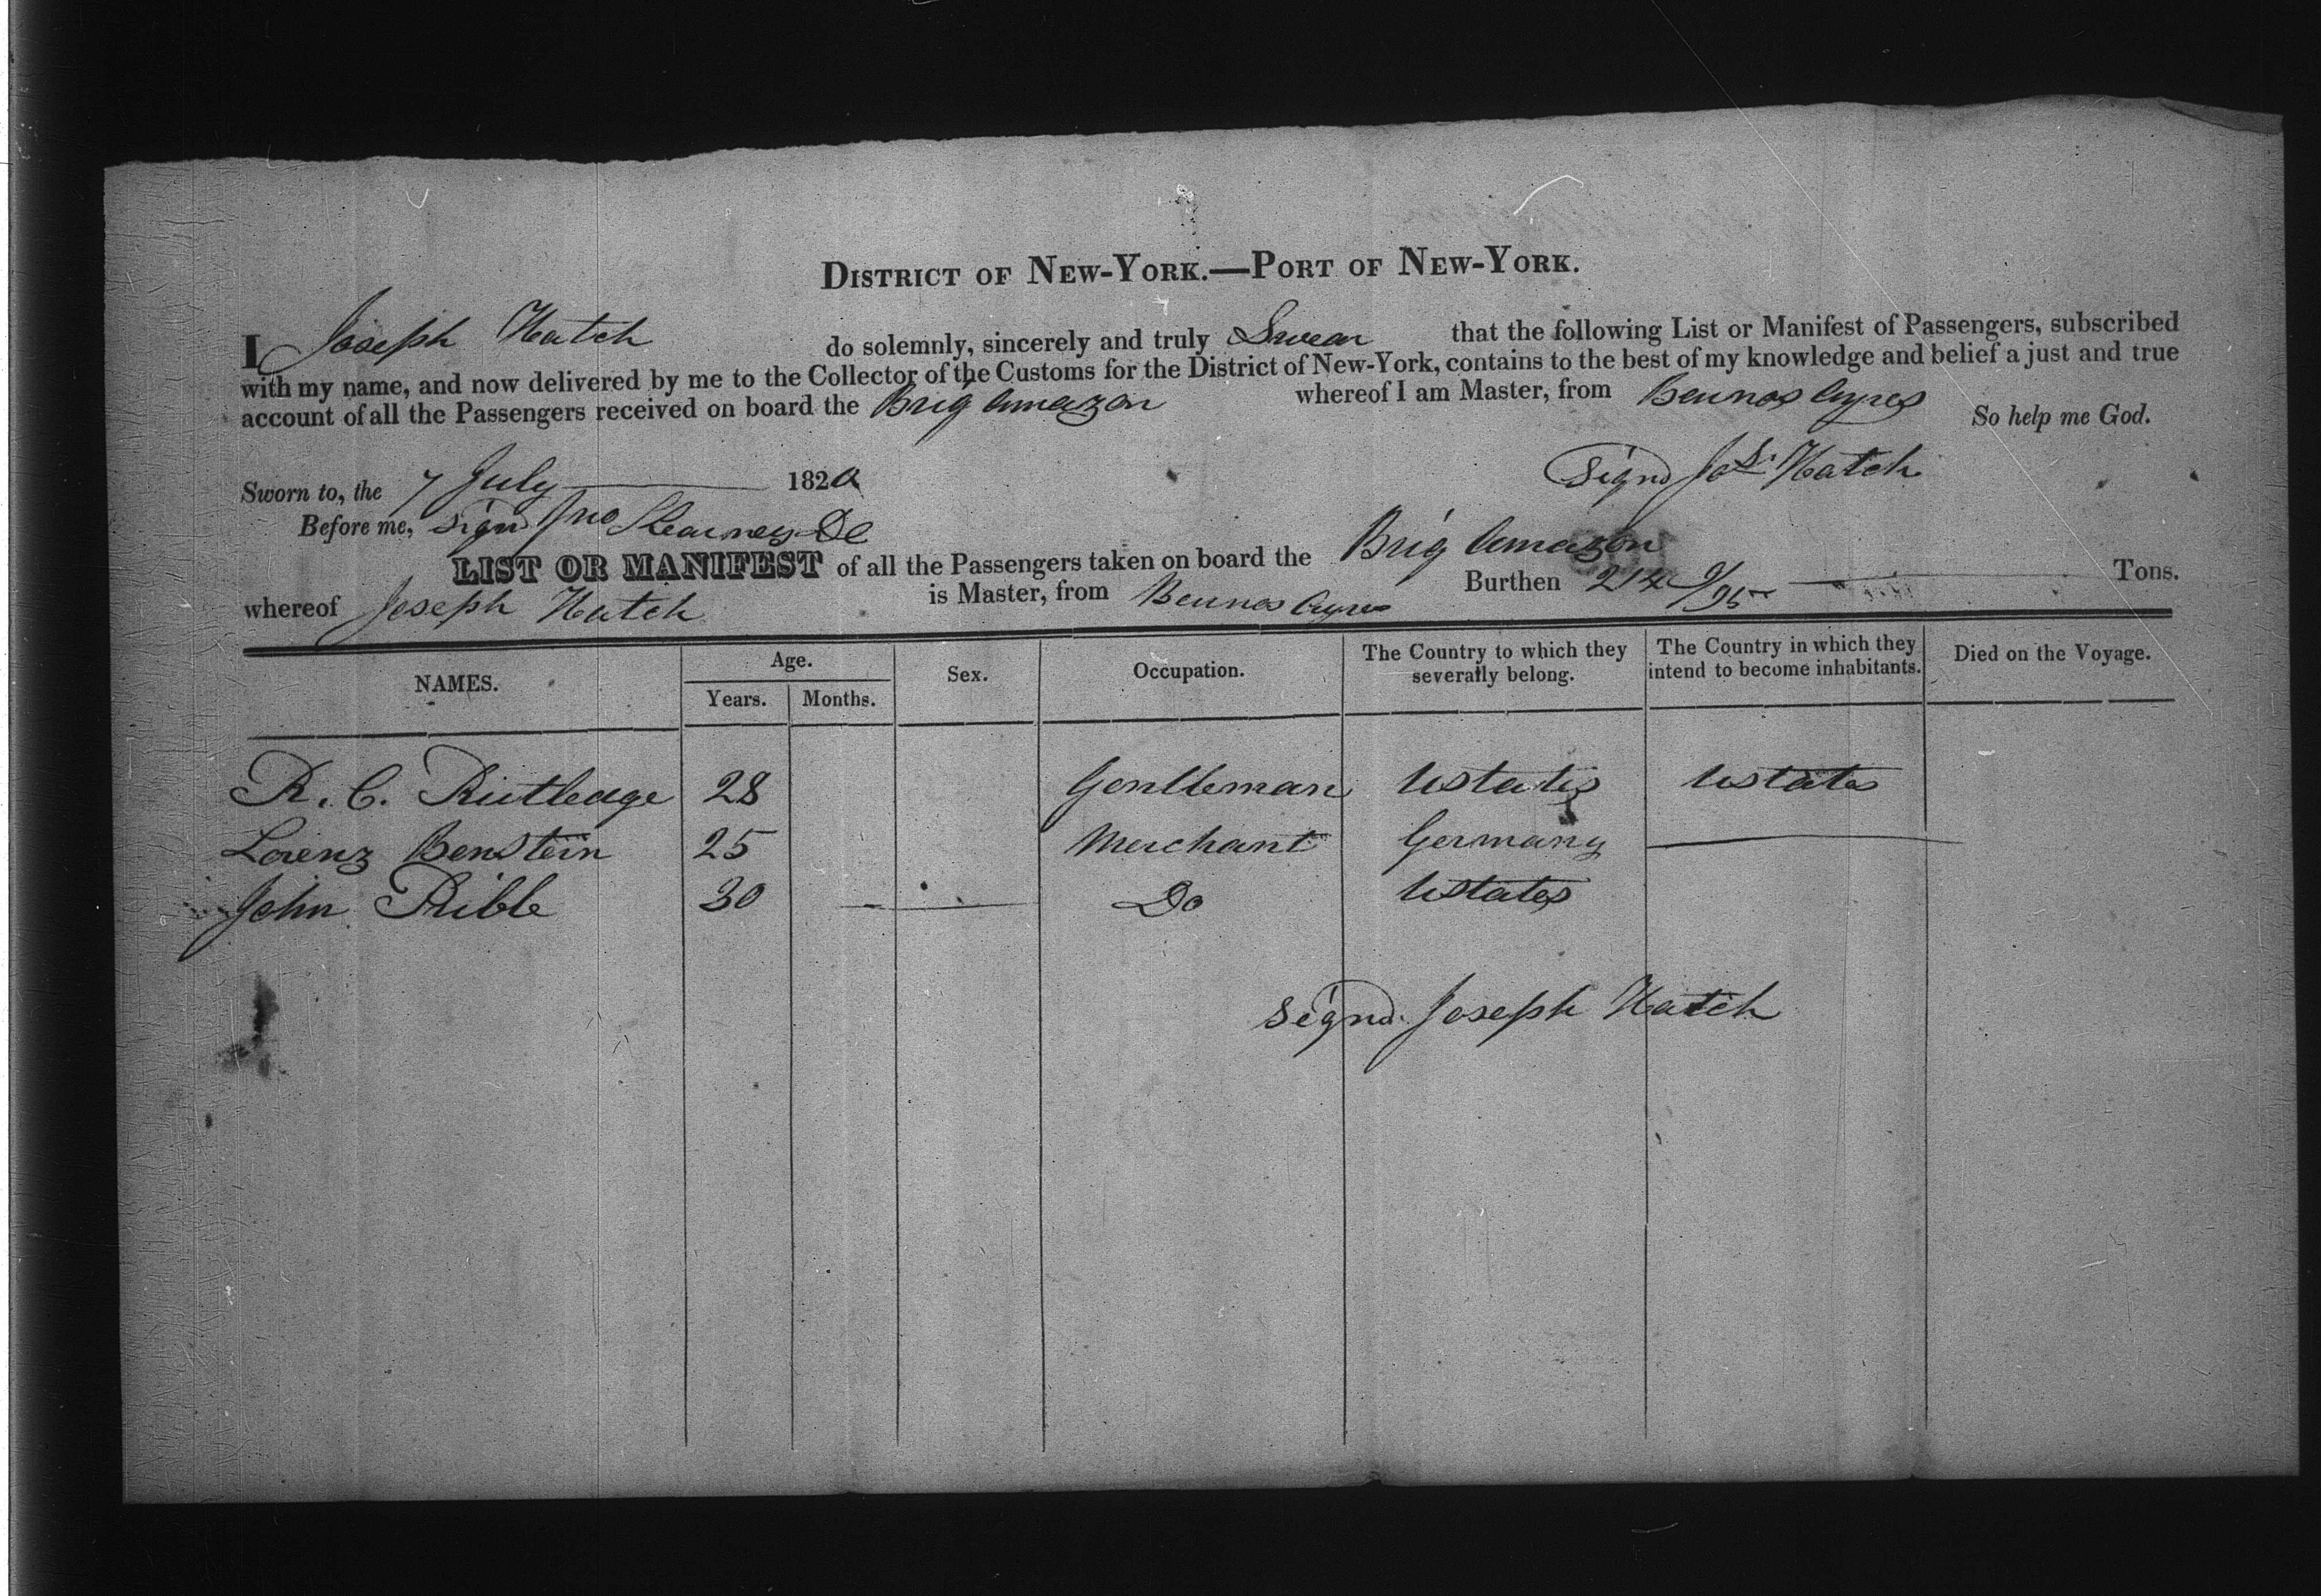 DISTRICT OF NEW-YORK.—PORT OF NEW-YORK.
I Joseph Hatch do solemnly, sincerely and truly Swear that the following List or Manifest of Passengers, subscribed
with my name, and now delivered by me to the Collector of the Customs for the District of New-York, contains to the best of my knowledge and belief a just and true
account of all the Passengers received on board the Brig Amazon whereof I am Master, from Beunos Ayres
So help me God.
Sworn to, the 7 July 1820 Signd Jos. Hatch
Before me, signd Jno
LIST OR MANIFEST of all the Passengers taken on board the Brig Amazon
whereof Joseph Hatch is Master, from Beunos Ayres Burthen 214 9/95 Tons.
NAMES. Age. Years. Months. Sex. Occupation. The Country to which they severally belong. The Country in which they intend to become inhabitants. Died on the Voyage.
R. C. Rutledge 28 Gentleman Ustates Ustates
Lorenz Benstein 25 Merchant Germany
John Ribble 30 Do Ustates
signd. Joseph Hatch